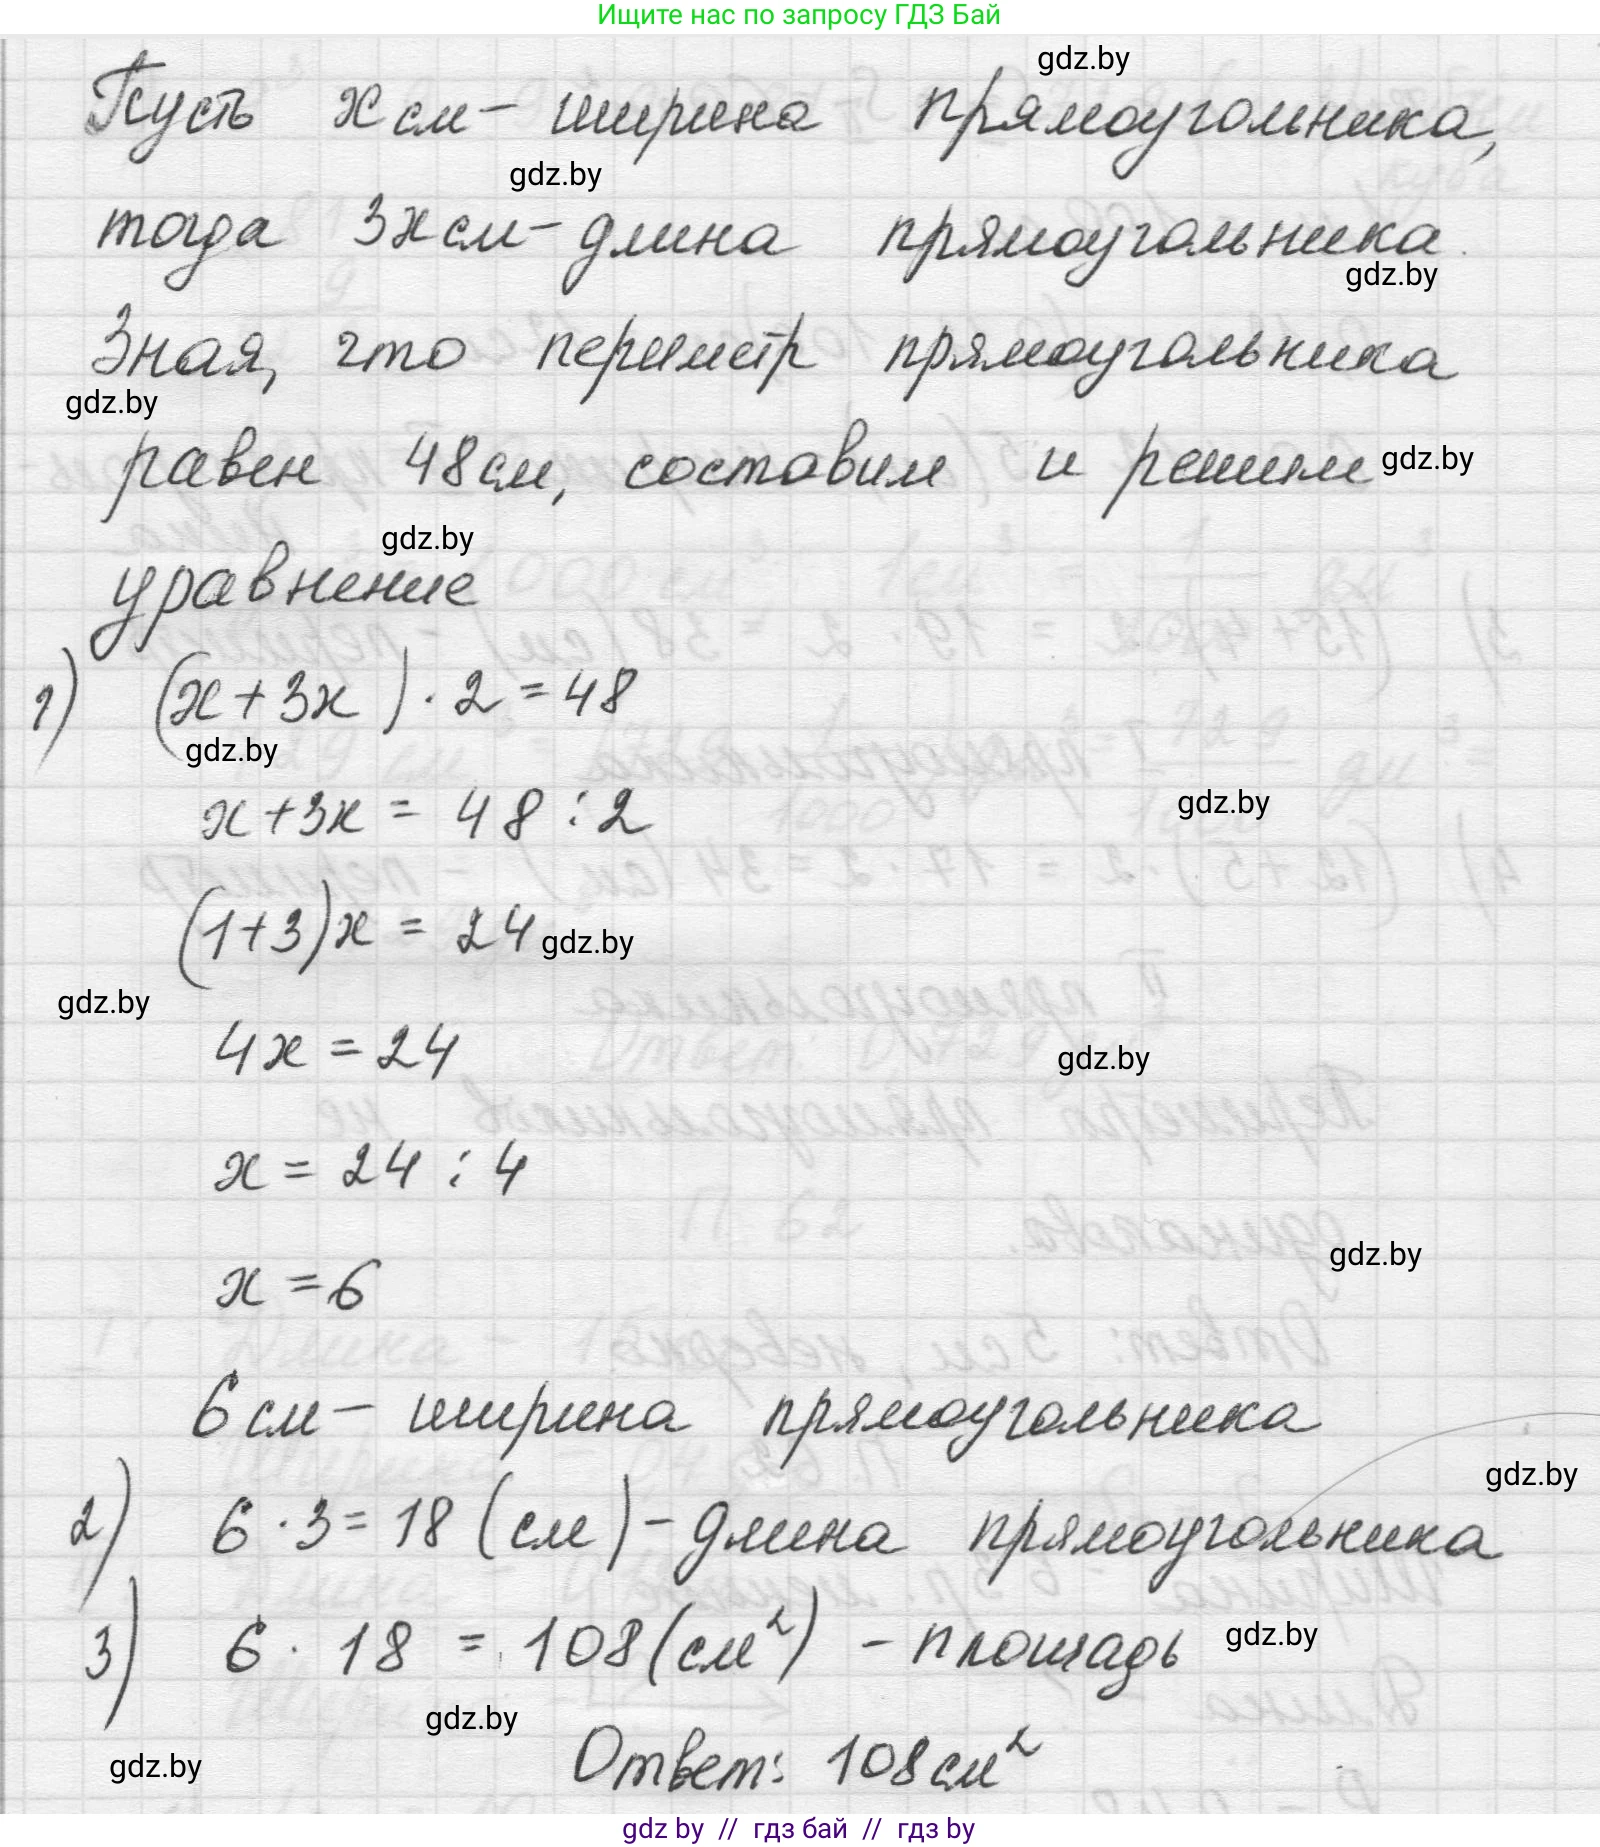 Ищите нас по запросу ГДЗ Бай
gdz.by
Пусть x см - ширина прямоугольника,
gdz.by
тогда 3x см - длина прямоугольника.
gdz.by
Зная, что периметр прямоугольника
gdz.by
равен 48 см, составим и решим
gdz.by
gdz.by
уравнение
1) (x + 3x) · 2 = 48
gdz.by
x + 3x = 48 : 2
gdz.by
(1+3)x = 24
gdz.by
gdz.by
4x = 24
gdz.by
x = 24 : 4
gdz.by
x = 6
6 см - ширина прямоугольника
gdz.by
2) 6 · 3 = 18 (см) - длина прямоугольника
3) 6 · 18 = 108 (см²) - площадь
gdz.by
gdz.by
Ответ: 108 см²
gdz.by
gdz by // гдз бай // гдз by